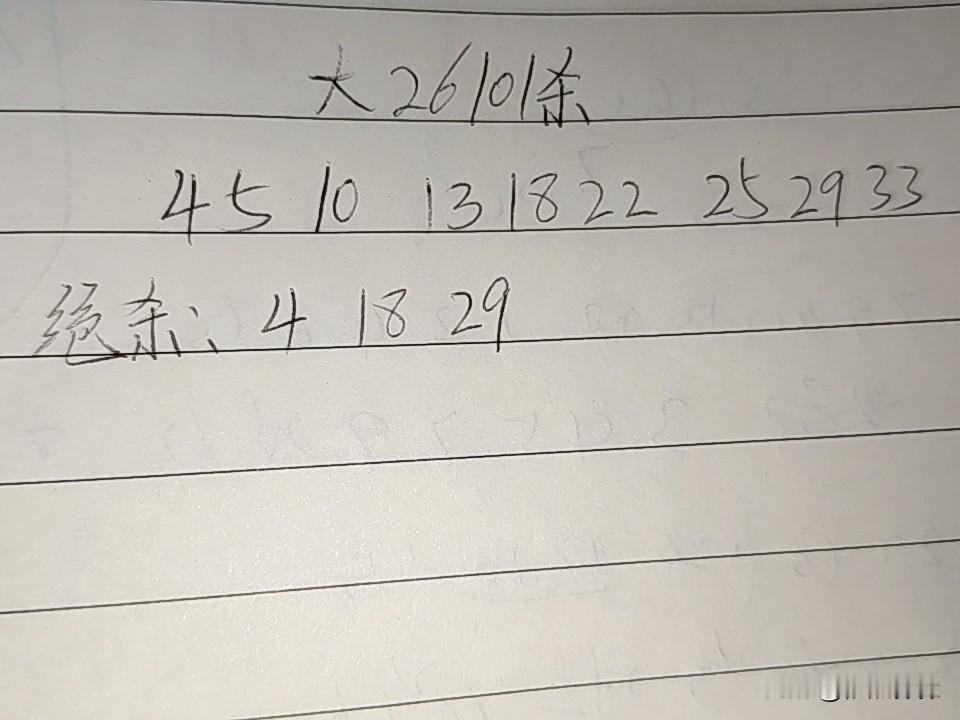 大26101杀
4 5 10 13 18 22 25 29 33
绝杀: 4 18 29